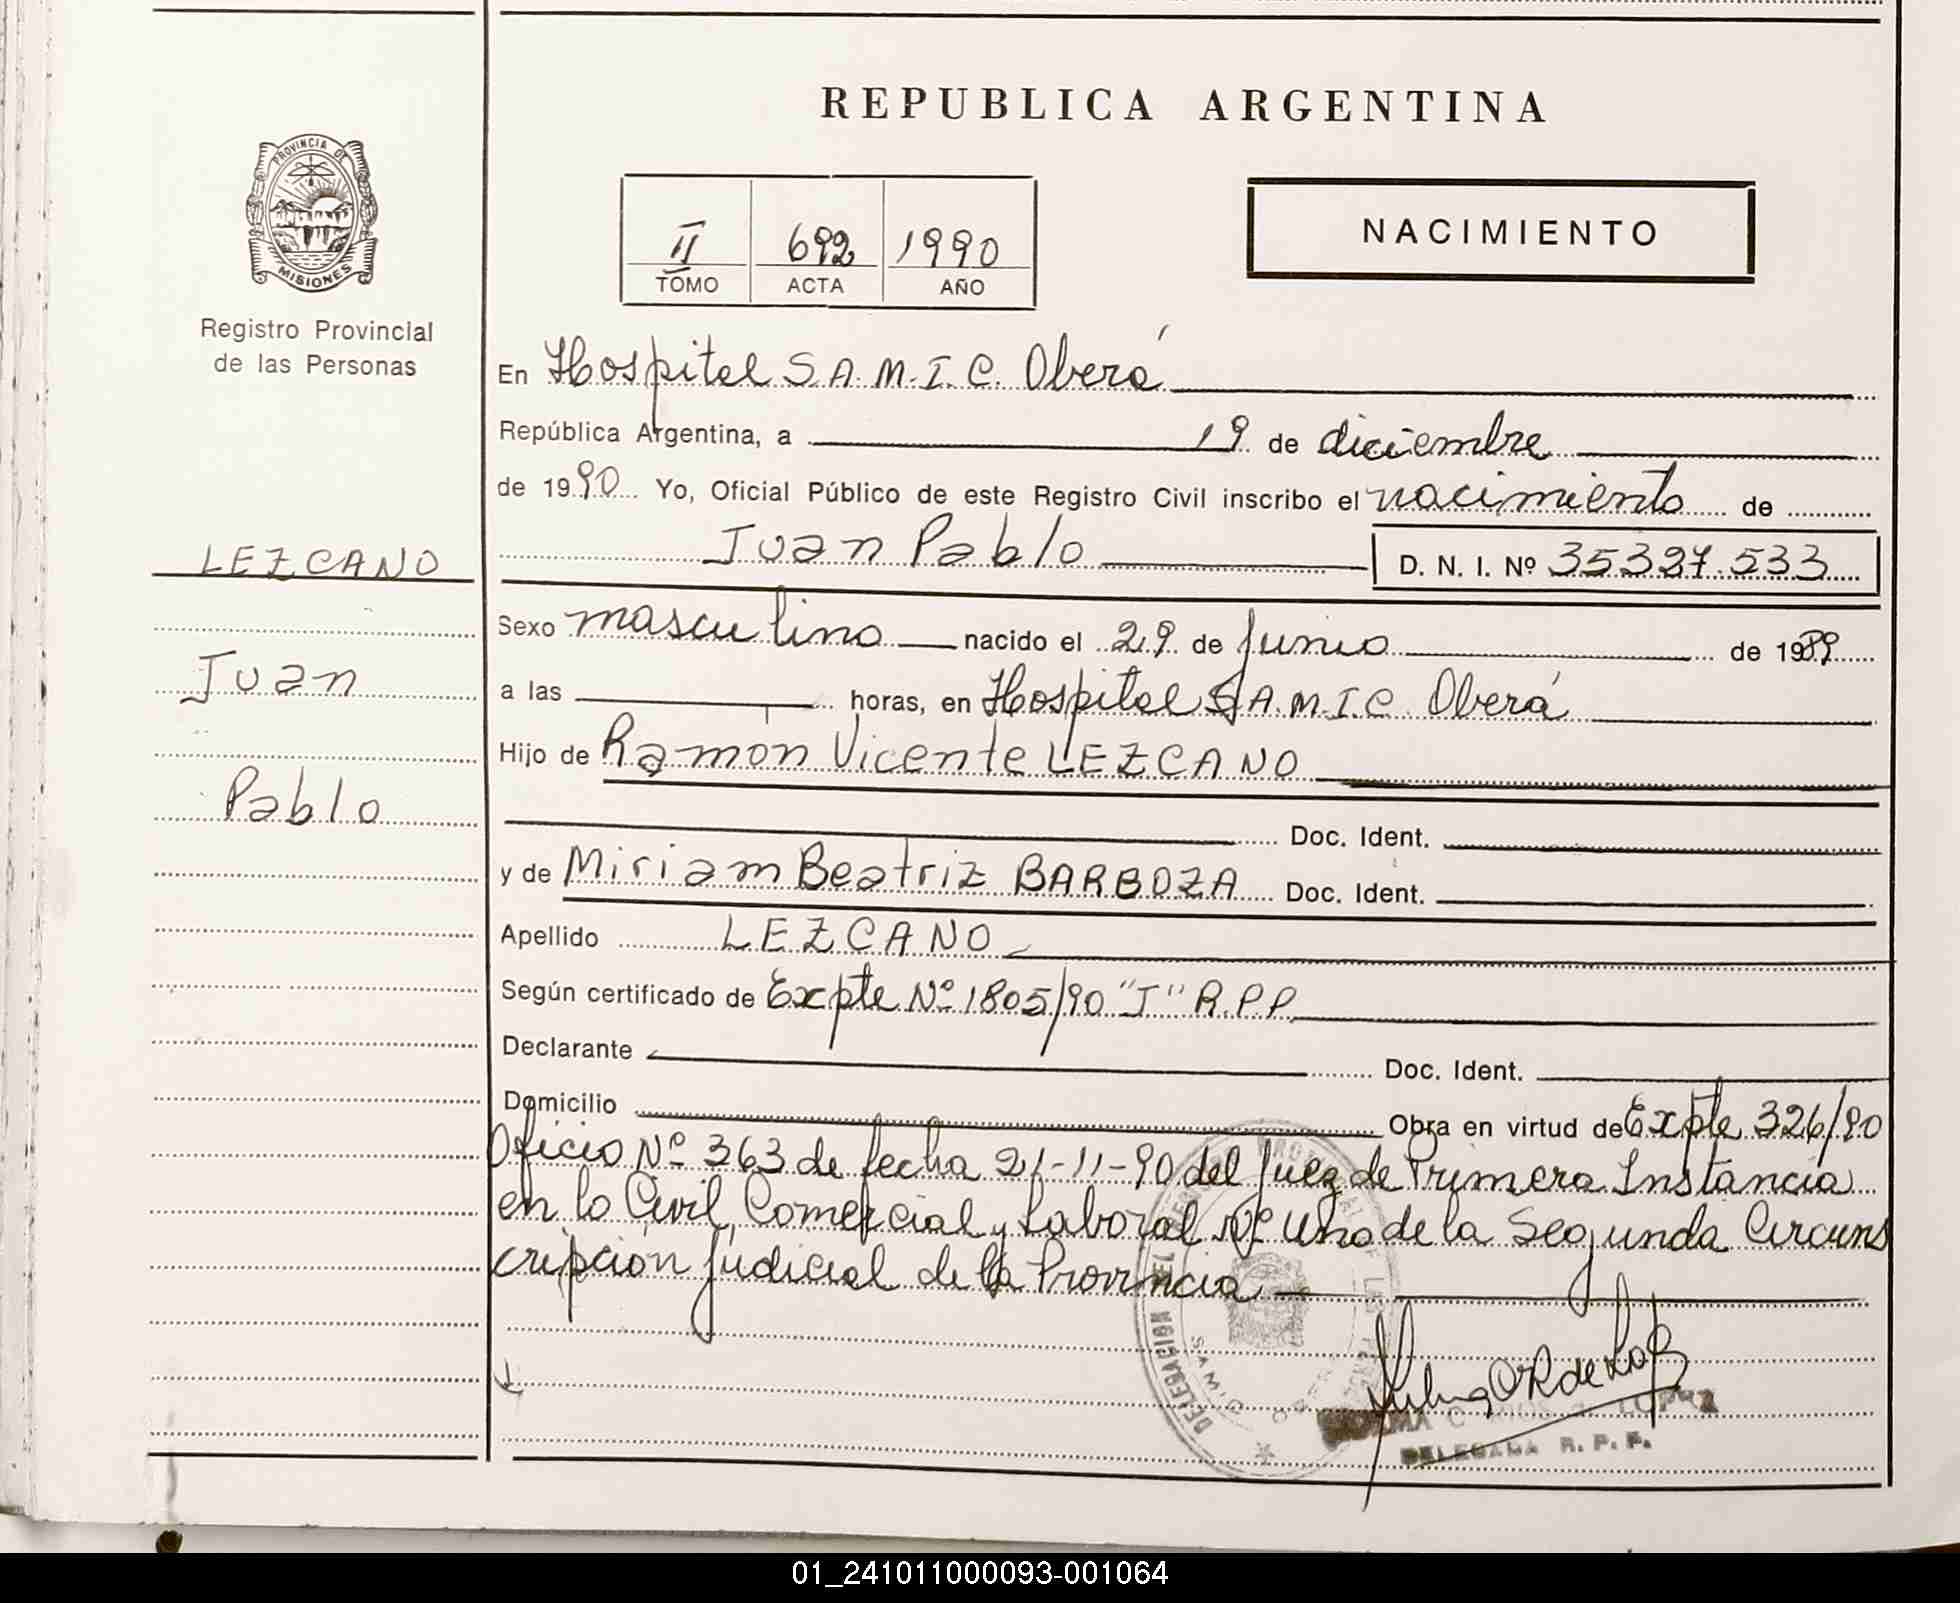 REPUBLICA ARGENTINA
PROVINCIA DE
MISIONES
Registro Provincial
de las Personas
II 692 1990
TOMO ACTA AÑO
NACIMIENTO
En Hospital S.A.M.I.C. Oberá
República Argentina, a 19 de diciembre
de 1990 Yo, Oficial Público de este Registro Civil inscribo el nacimiento de
Juan Pablo D. N. I. Nº 35327.533
LEZCANO
Juan
Pablo
Sexo masculino nacido el 29 de Junio de 1989
a las horas, en Hospital S.A.M.I.C. Oberá
Hijo de Ramón Vicente LEZCANO
Doc. Ident.
y de Miriam Beatriz BARBOZA Doc. Ident.
Apellido LEZCANO
Según certificado de Expte Nº 1805/90 "J" R.P.P.
Declarante Doc. Ident.
Domicilio Obra en virtud de Expte 326/90
Oficio Nº 363 de fecha 21-11-90 del Juez de Primera Instancia
en lo Civil, Comercial y Laboral Nº Uno de la Segunda Circuns
cripción judicial de la Provincia
DELEGACION DEL
DELEGADA R. P. P.
01_241011000093-001064